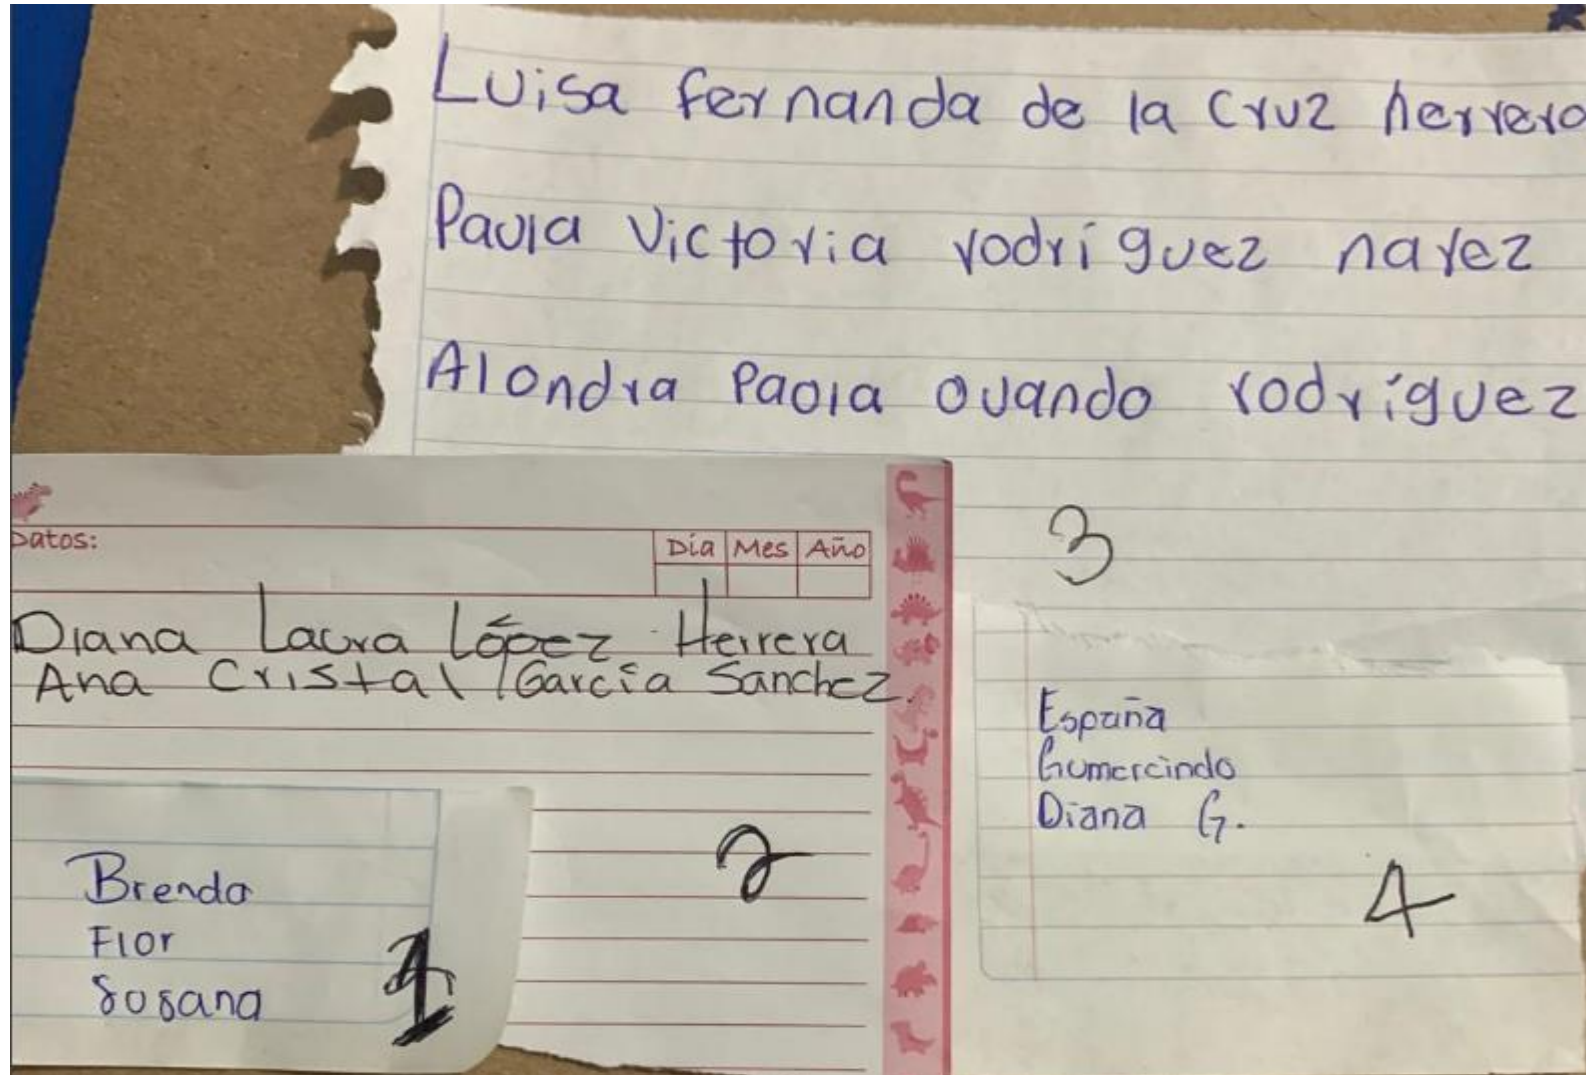 Luisa fernanda de la Cruz herrero
Paula Victoria rodríguez narez
Alondra Paola ovando rodríguez
3
Datos:
Día Mes Año
Diana Laura López Herrera
Ana Cristal García Sanchez.
2
Brenda
Flor
Susana
1
España
Gumercindo
Diana G.
4